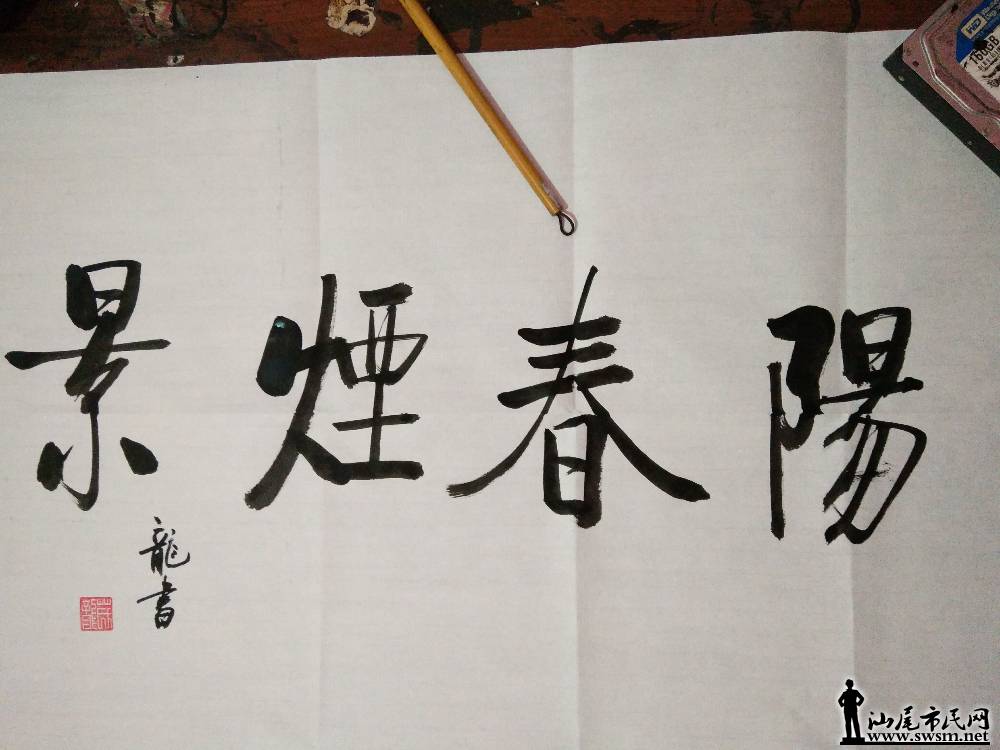 陽春煙景
龍書
WD
160GB
汕尾市民网
www.swsm.net